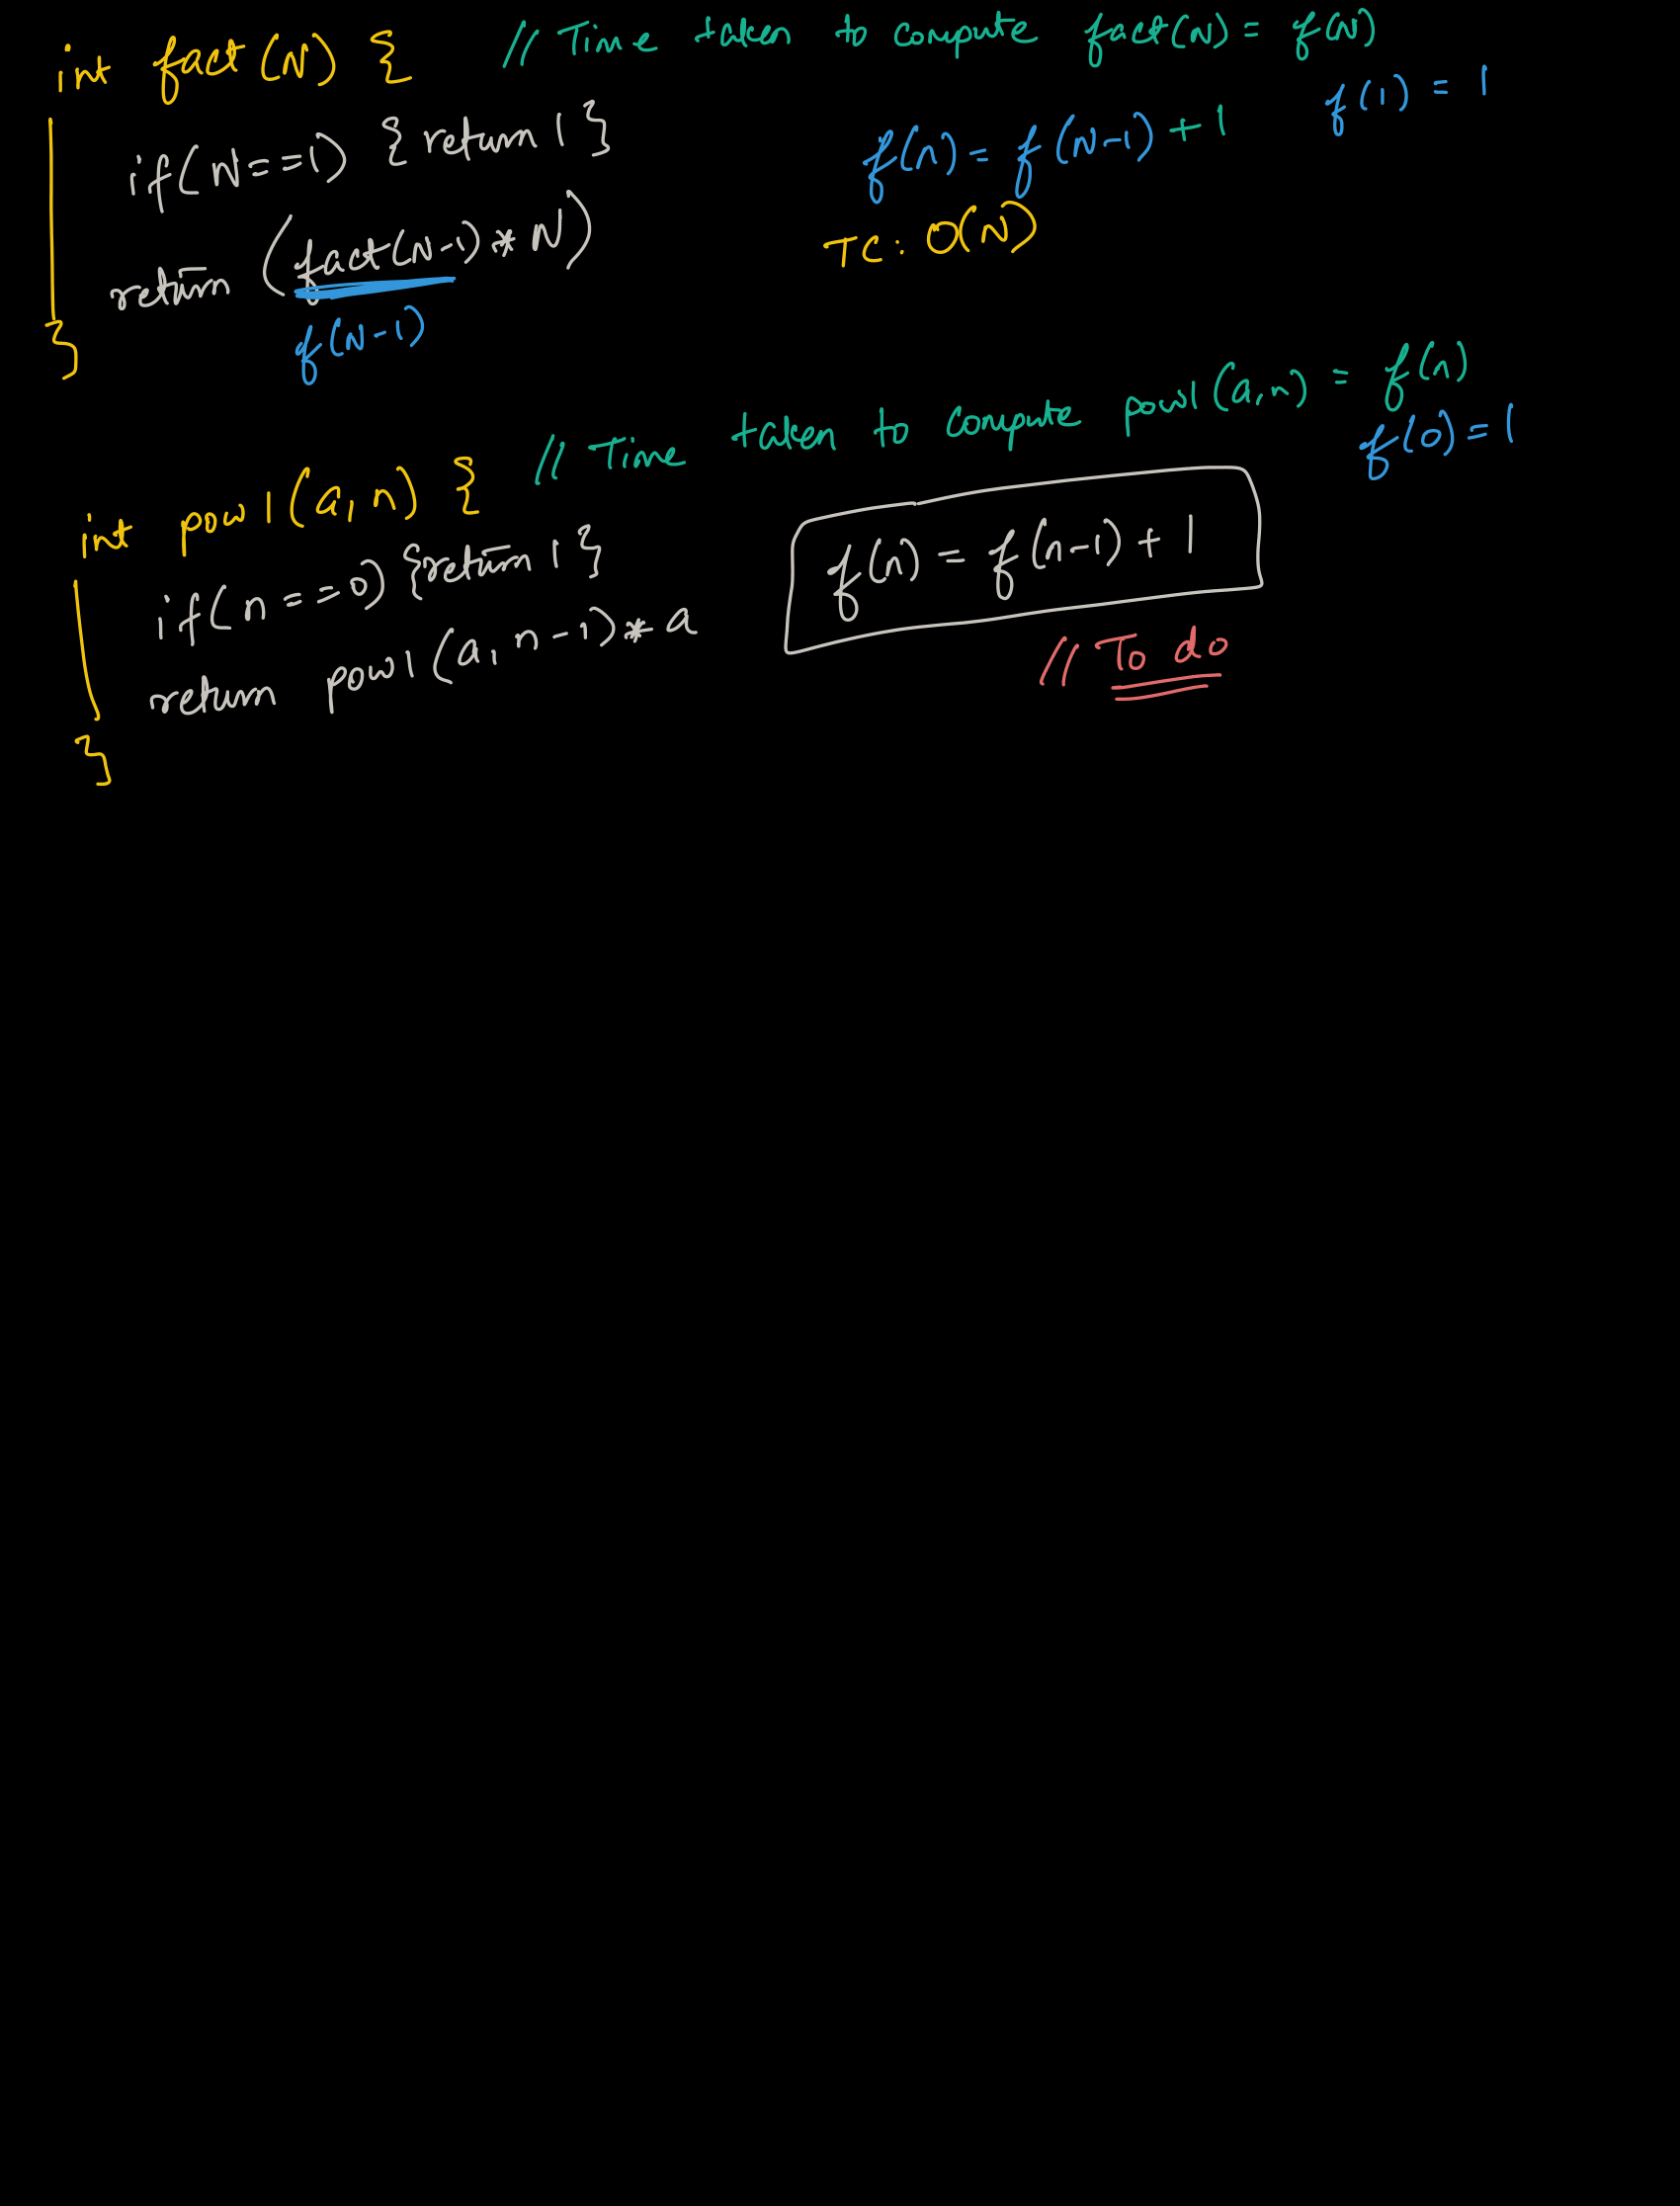 int fact(N) { // Time taken to compute fact(N) = f(N)
if(N==1) { return 1 } f(n) = f(N-1) + 1 f(1) = 1
return (fact(N-1) * N) TC: O(N)
} f(N-1)
int pow1(a, n) { // Time taken to compute pow1(a,n) = f(n)
f(0) = 1
if(n==0) {return 1} f(n) = f(n-1) + 1
return pow1(a, n-1) * a // To do
}